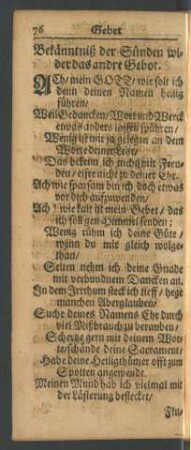 76 Gebet
Bekänntniß der Sünden wi-
der das andre Gebot.
ACh/ mein GOTT/ wie solt ich
denn deinen Namen heilig
führen/
Weil Gedancken/ Wort und Werck
etwas anders lassen spühren/
Wenig ist mir ja gelegen an dem
Worte deiner Lehr/
Das bekenn ich nicht mit Freu-
den/ eifre nicht zu deiner Ehr.
Ach wie sparsam bin ich doch etwas
vor dich aufzuwenden/
Ach! wie kalt ist mein Gebet/ das
ich soll gen Himmel senden;
Wenig rühm ich deine Güte/
wenn du mit gleich wolge-
than/
Selten nehm ich deine Gnade
mit verbundnem Dancken an.
In dem Irrthum steck ich tieff/ hege
manchen Aberglauben/
Suche deines Namens Ehr durch
viel Mißbrauch zu berauben/
Schertze gern mit deinem Wor-
te/ schände deine Sacrament/
Habe deine Heiligthümer offt zum
Spotten angewendt.
Meinen Mund hab ich vielmal mit
der Lästerung beflecket/
Flu-